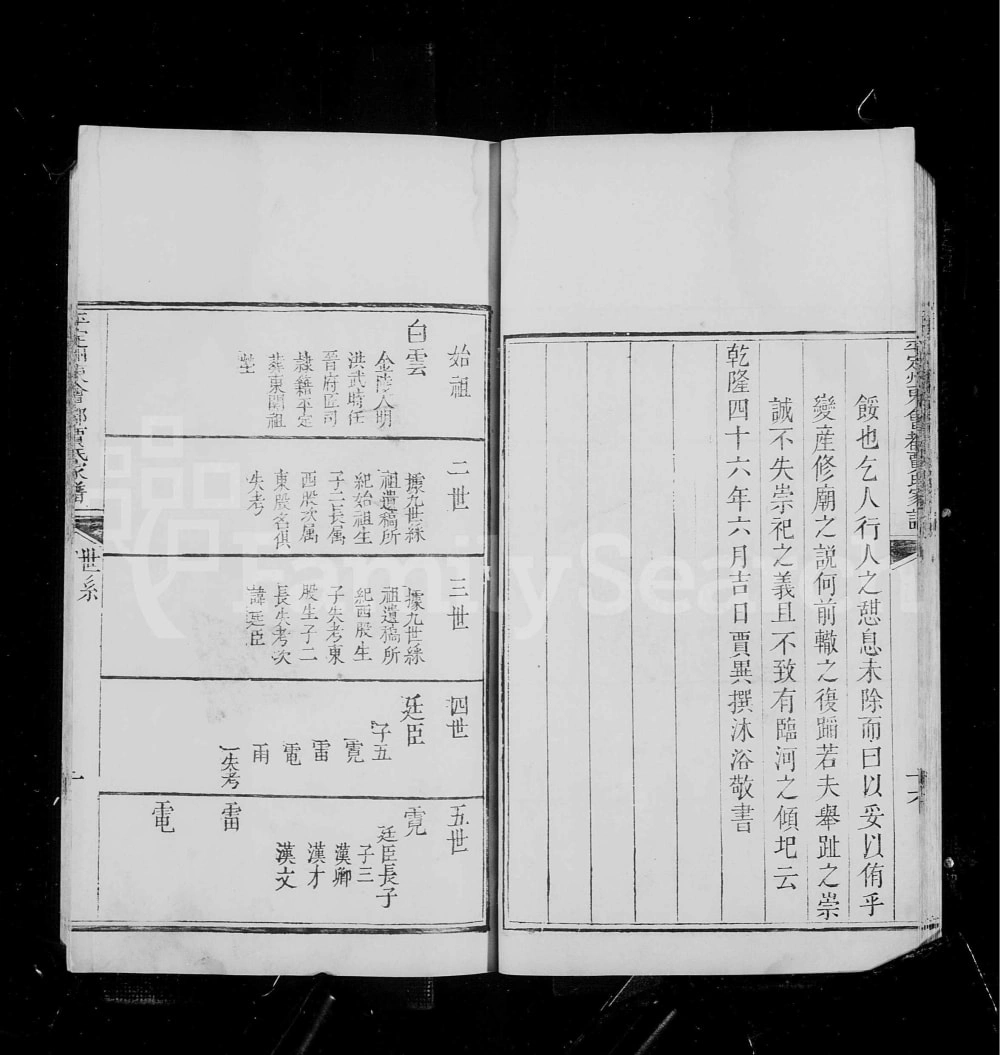 餒也乞人行人之愆息未除而曰以妥以侑乎
變産修廟之説何前轍之復蹈若夫舉趾之崇
誠不失崇祀之義且不致有臨河之傾圯云
乾隆四十六年六月吉日賈異撰沐浴敬書
十六
始祖
白雲
金陵人明
洪武時任
晉府匠司
隷籍平定
葬東關祖
塋
二世
據九世綵
祖遺稿所
紀始祖生
子二長属
西股次属
東股名俱
失考
三世
據九世綵
祖遺稿所
紀西股生
子失考東
股生子二
長失考次
諱廷臣
四世
廷臣
子五
霓
雷
電
雨
一失考
五世
霓
廷臣長子
子三
漢卿
漢才
漢文
雷
電
賈氏家譜
世系
一
FamilySearch